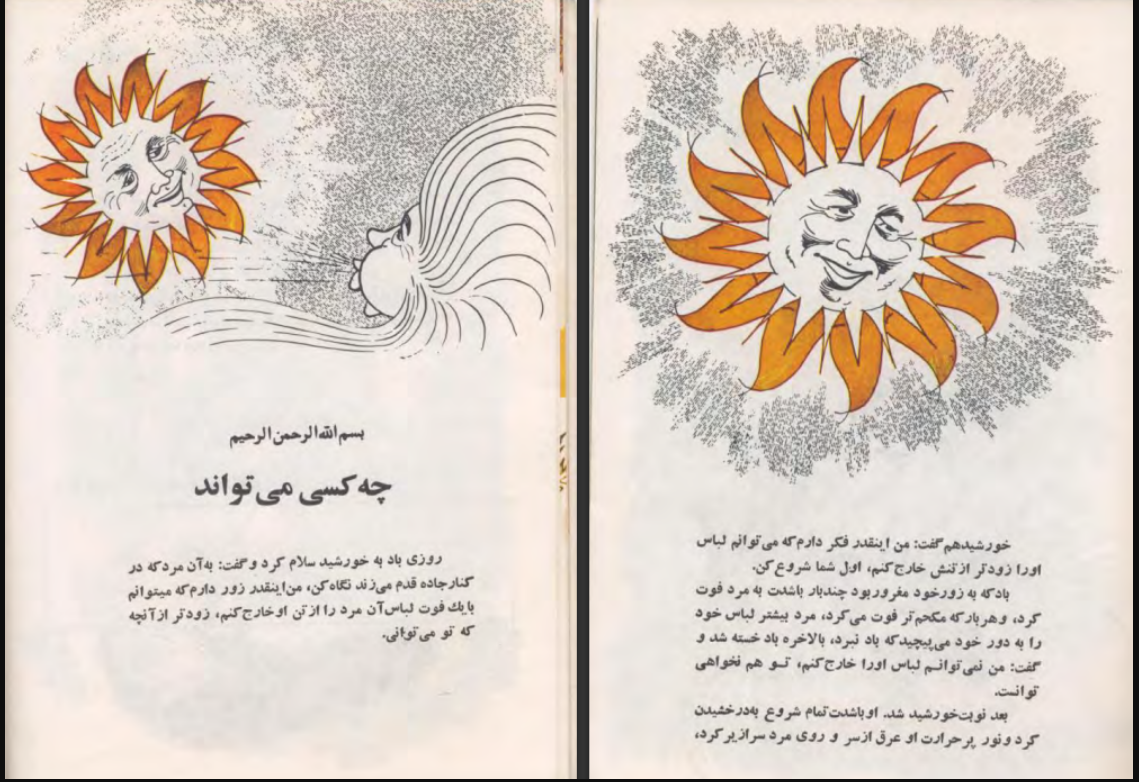 بسم الله الرحمن الرحیم
چه کسی می تواند
روزی باد به خورشید سلام کرد و گفت: به آن مرد که در
کنار جاده قدم می زند نگاه کن، من اینقدر زور دارم که میتوانم
با یك فوت لباس آن مرد را از تن او خارج کنم، زودتر از آنچه
که تو می توانی.
خورشید هم گفت: من اینقدر فکر دارم که می توانم لباس
اورا زودتر از تنش خارج کنم، اول شما شروع کن.
باد که به زور خود مغرور بود چند بار باشدت به مرد فوت
کرد، و هر بار که مکحم تر فوت می کرد، مرد بیشتر لباس خود
را به دور خود می پیچید که باد نبرد، بالاخره باد خسته شد و
گفت: من نمی توانم لباس اورا خارج کنم، تو هم نخواهی
توانست.
بعد نوبت خورشید شد. او باشدت تمام شروع به درخشیدن
کرد و نور پر حرارت او عرق از سر و روی مرد سرازیر کرد،